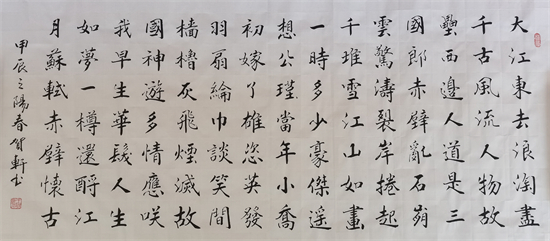 大江東去浪淘盡
千古風流人物故
壘西邊人道是三
國郎赤壁亂石崩
雲驚濤裂岸捲起
千堆雪江山如畫
一時多少豪傑遥
想公瑾當年小喬
初嫁了雄恣英發
羽扇綸巾談笑間
檣櫓灰飛煙滅故
國神遊多情應咲
我早生華髮人生
如夢一樽還酹江
月蘇軾赤壁懷古
甲辰之陽春軒书